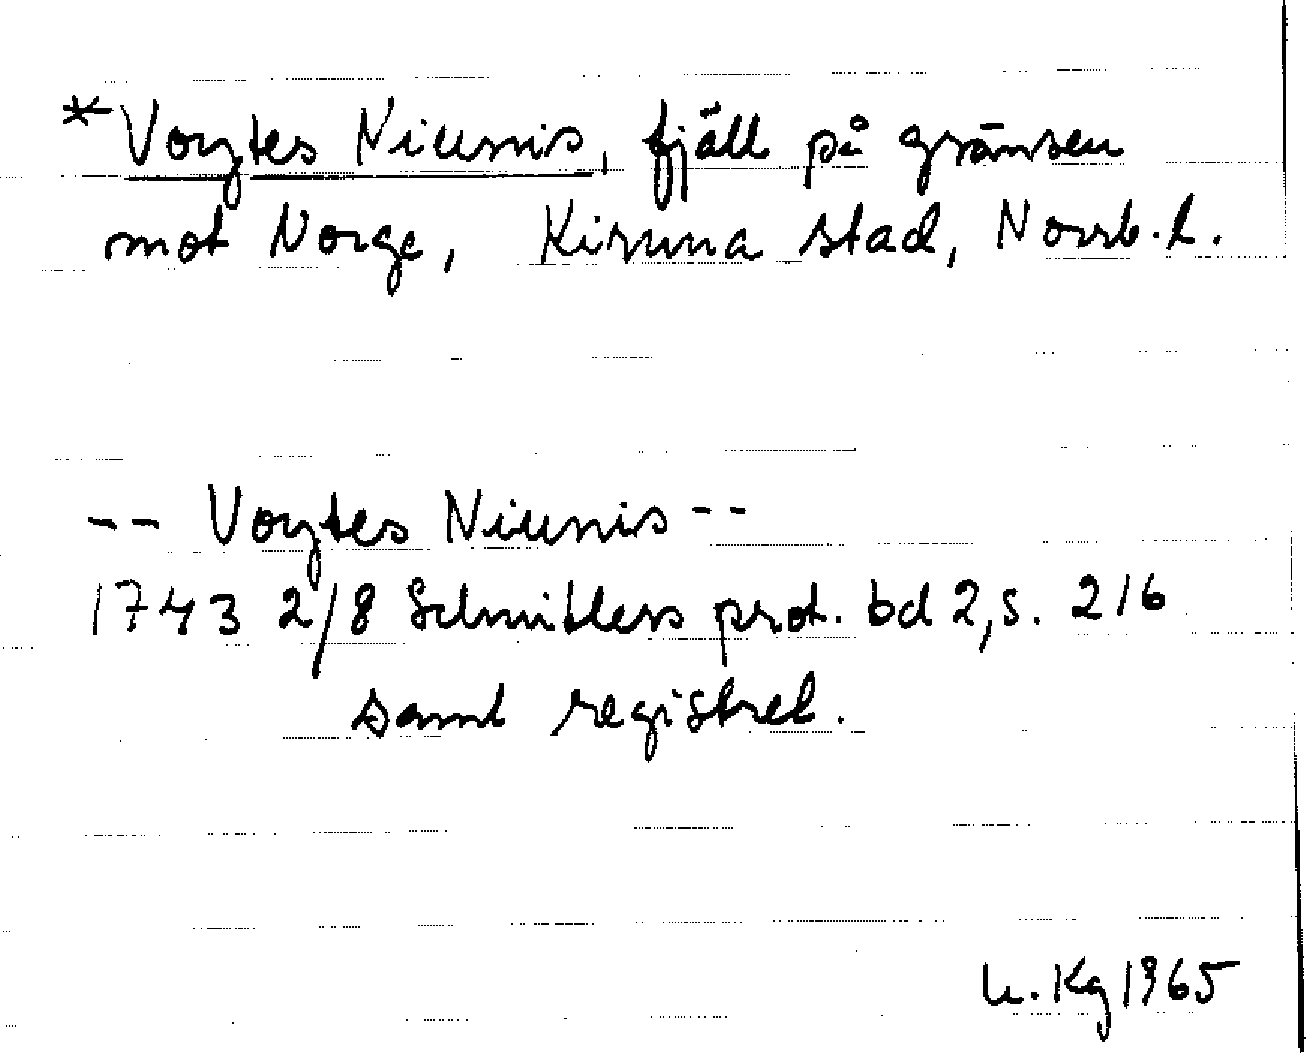 *Vortes Niunnis, fjäll på gränsen
mot Norge, Kiruna stad, Norrb.l.
-- Voytes Niunis --
1743 2/8 Schnitlers prot. bd 2, s. 216
samt registret.
u. Kg 1965